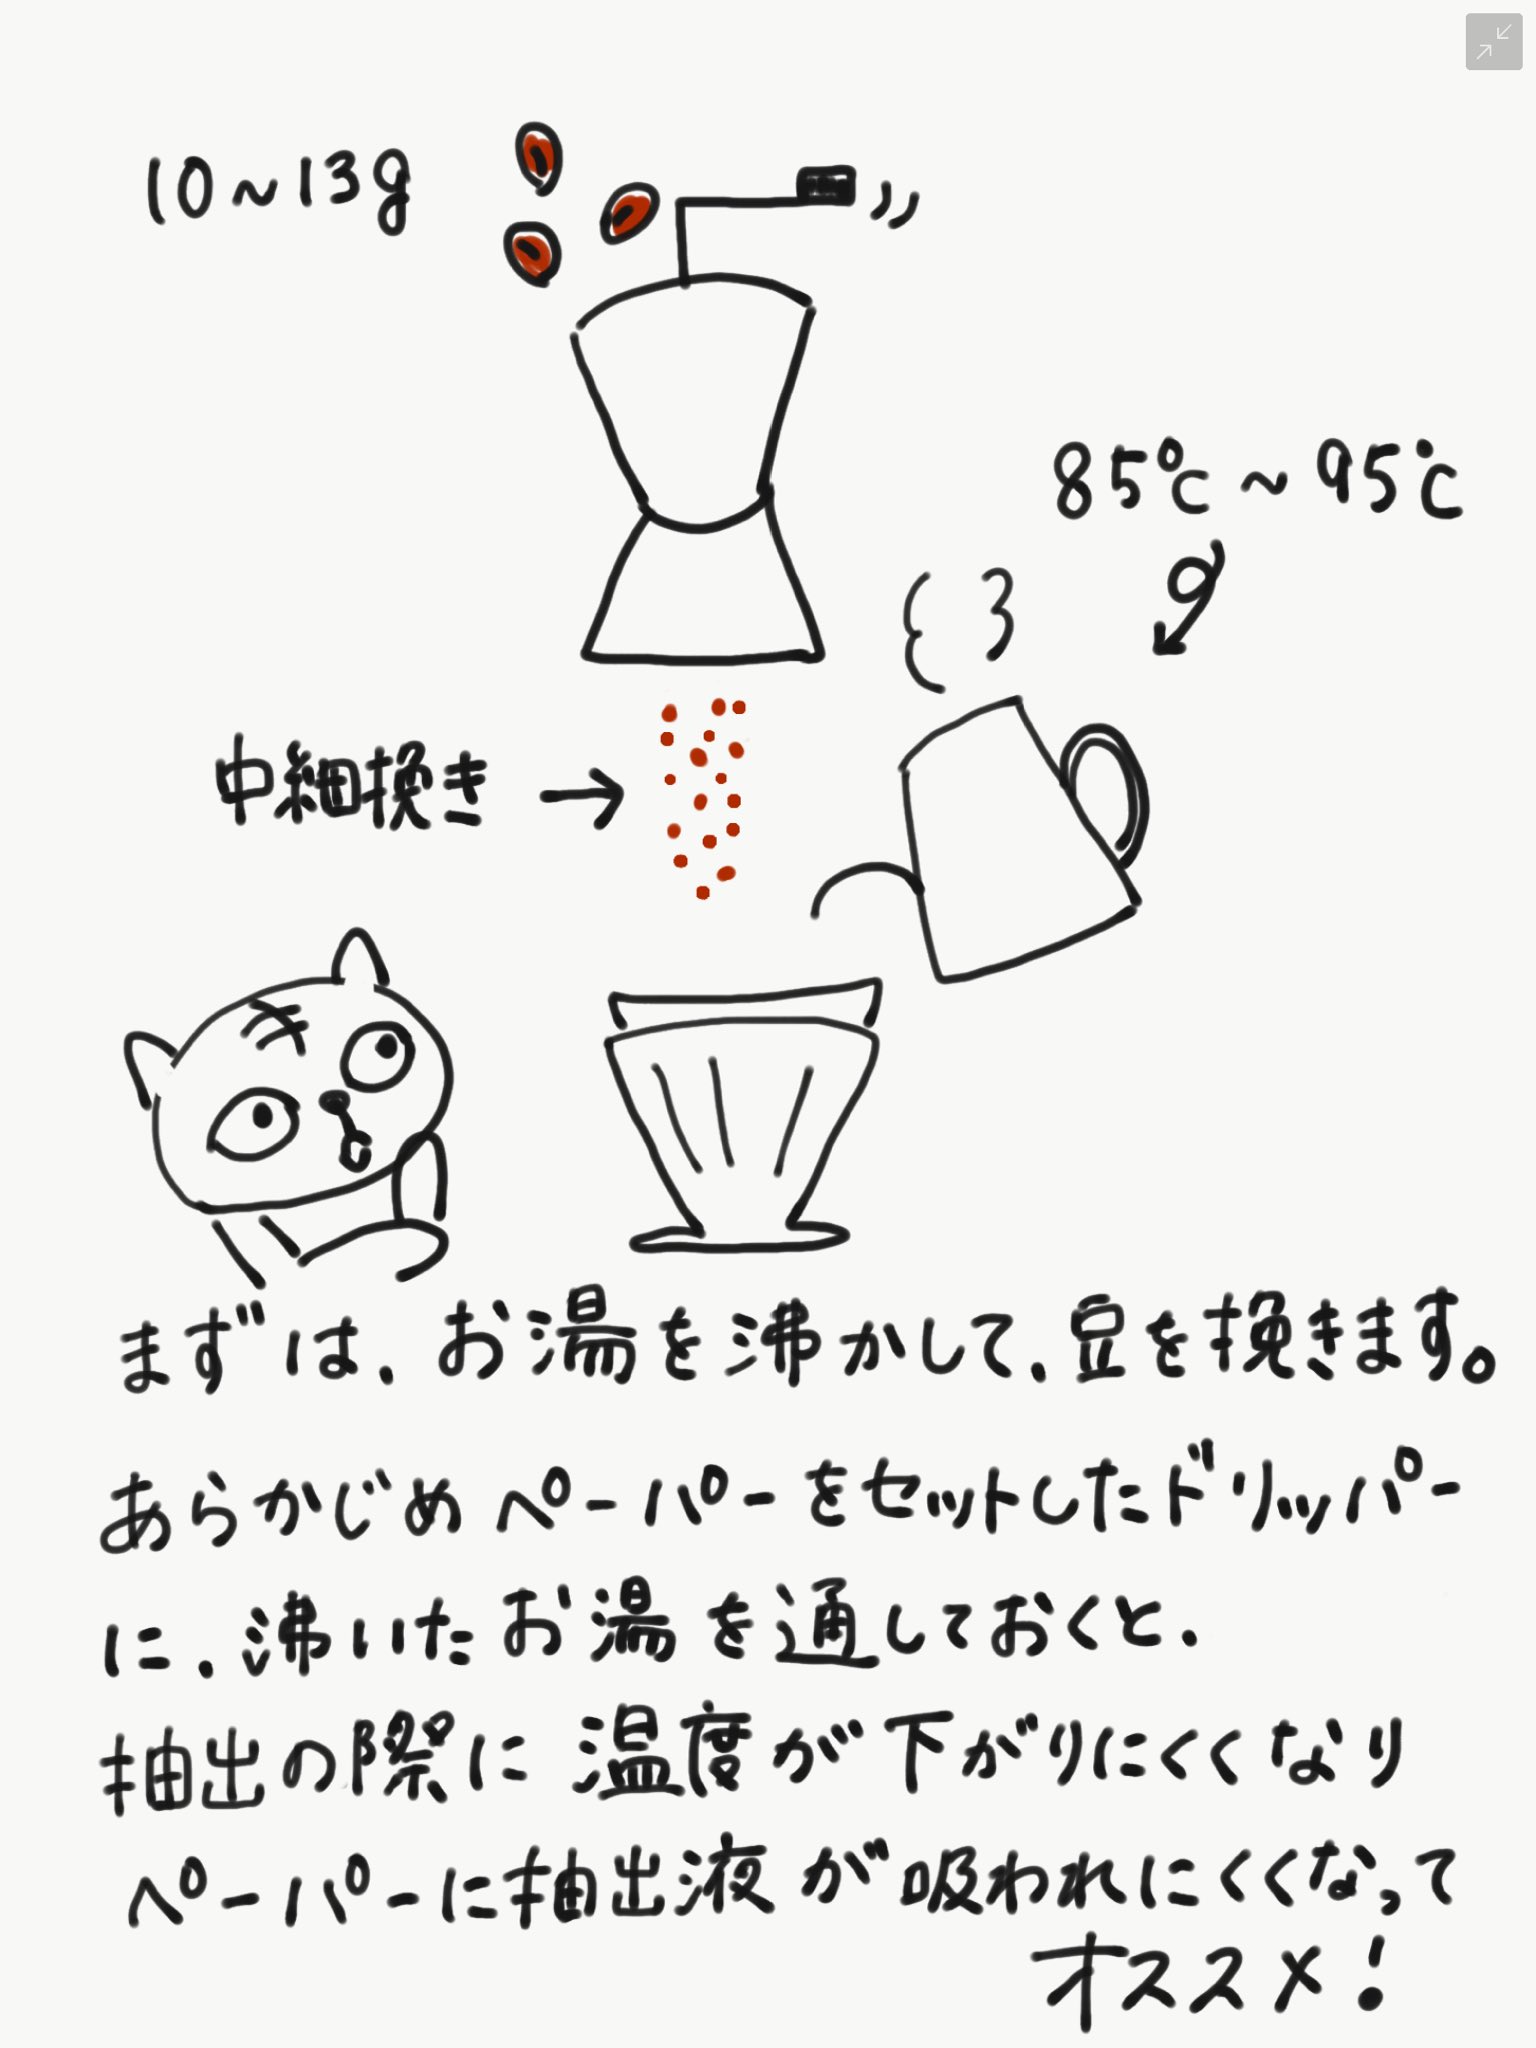 10~13g
85℃~95℃
中細挽き →
まずは、お湯を沸かして、豆を挽きます。
あらかじめペーパーをセットしたドリッパー
に、沸いたお湯を通しておくと、
抽出の際に温度が下がりにくくなり
ペーパーに抽出液が吸われにくくなって
オススメ!